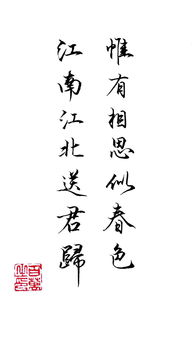 惟有相思似春色
江南江北送君歸